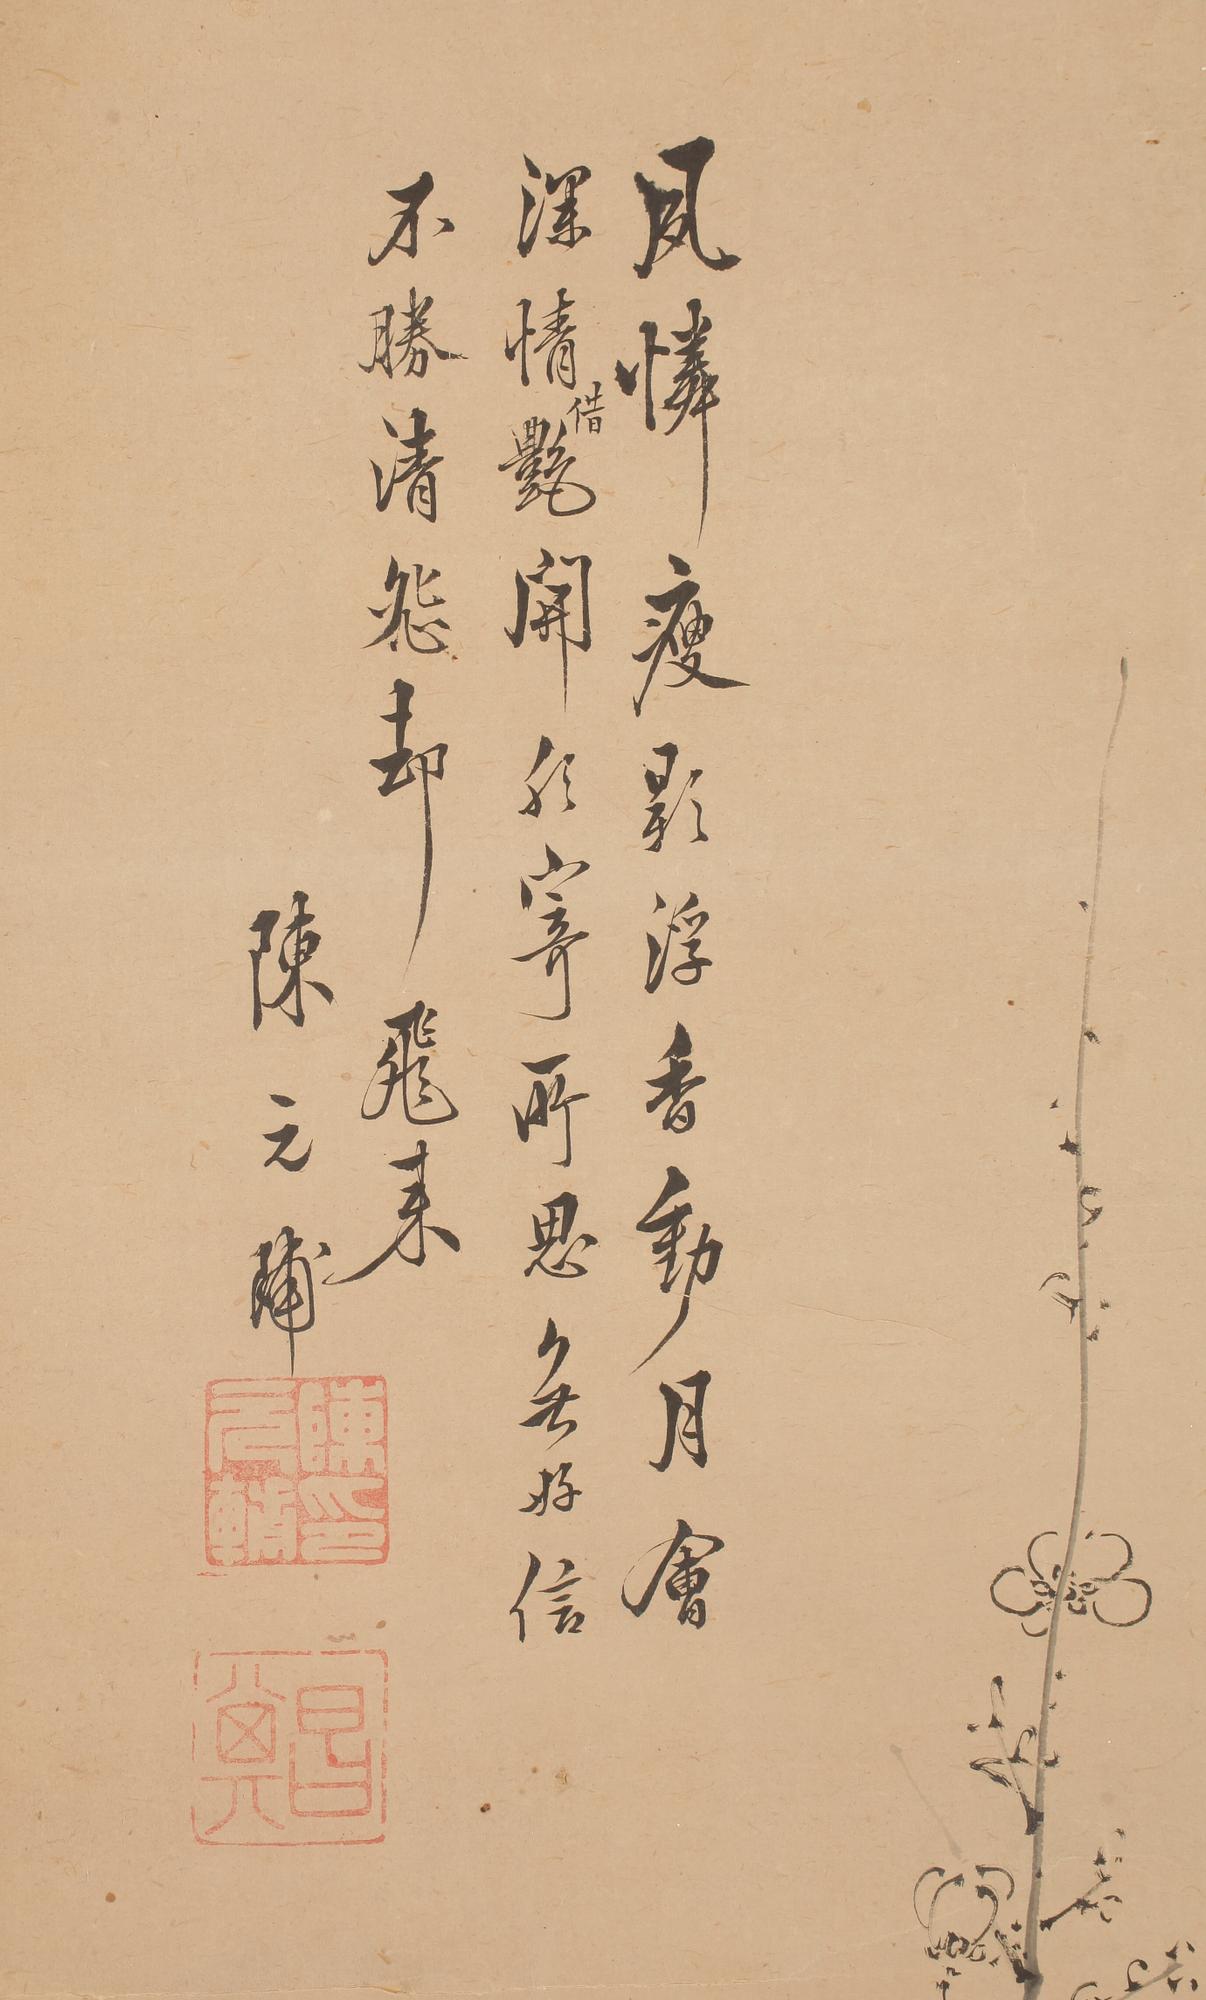 夙憐瘦影浮香動月會
深情借艷開欲寄所思無好信
不勝清怨却飛來
陳元輔
陳印元輔
昌其